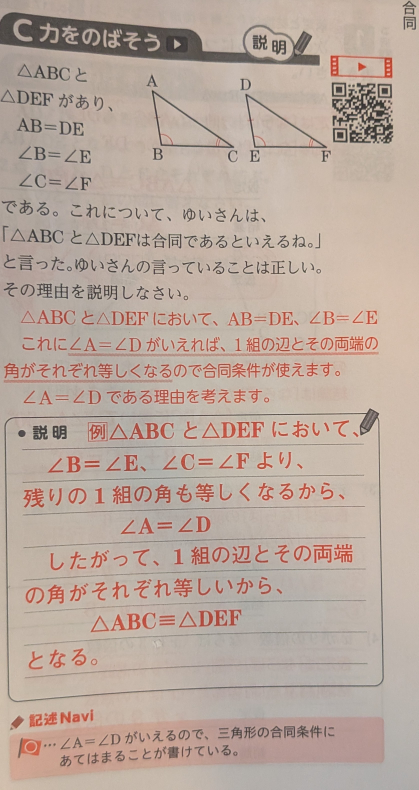 合同
C 力をのばそう
説明
△ABCと
△DEFがあり、
AB=DE
∠B=∠E
∠C=∠F
A
B
C
D
E
F
である。これについて、ゆいさんは、
「△ABCと△DEFは合同であるといえるね。」
と言った。ゆいさんの言っていることは正しい。
その理由を説明しなさい。
△ABCと△DEFにおいて、AB=DE、∠B=∠E
これに∠A=∠Dがいえれば、1組の辺とその両端の
角がそれぞれ等しくなるので合同条件が使えます。
∠A=∠Dである理由を考えます。
●説明 例 △ABCと△DEFにおいて、
∠B=∠E、∠C=∠Fより、
残りの1組の角も等しくなるから、
∠A=∠D
したがって、1組の辺とその両端
の角がそれぞれ等しいから、
△ABC≡△DEF
となる。
記述Navi
…∠A=∠Dがいえるので、三角形の合同条件に
あてはまることが書けている。